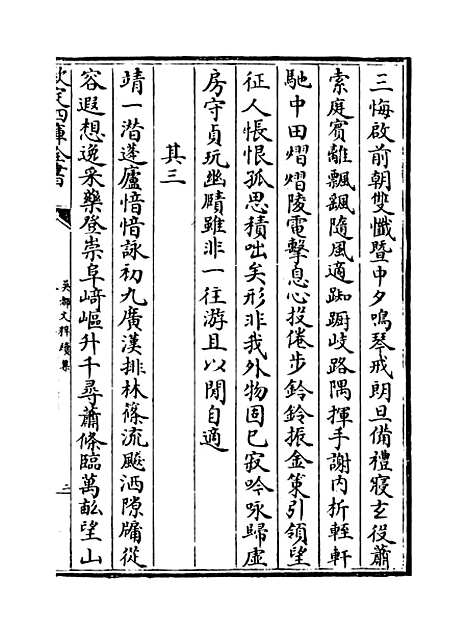 三悔啟前朝雙懺暨中夕鳴琴戒朗旦備禮寢玄役蕭
索庭賓離飄飄隨風適踟躕岐路隅揮手謝內析輊軒
馳中田熠熠陵電擊息心投倦步鈴鈴振金策引領望
征人悵恨孤思積咄矣形非我外物固已寂吟咏歸虛
房守貞玩幽賾雖非一往游且以閒自適
其三
靖一潛蓬廬愔愔詠初九廣漢排林篠流飈洒隙牖從
容遐想逸采藥登崇阜崎嶇升千尋蕭條臨萬畝望山
欽定四庫全書
吳都文粹續集